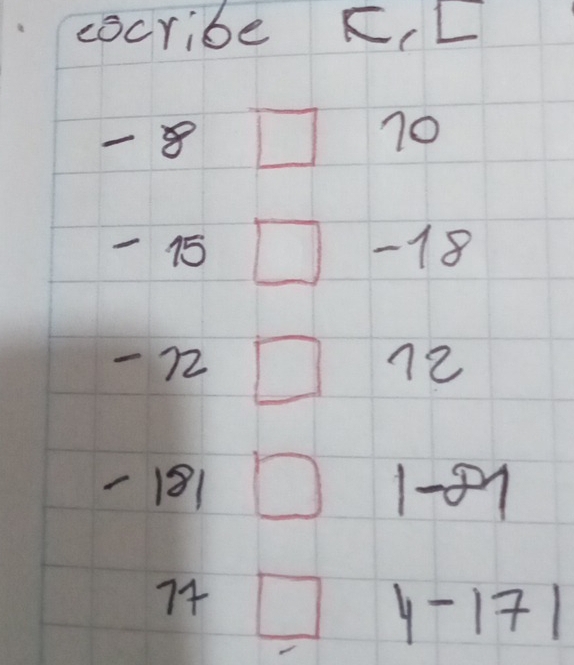 escribe <, [
- 8 □ 10
- 15 □ -18
- 12 □ 12
- |8| □ |-8|
17 □ |-17|